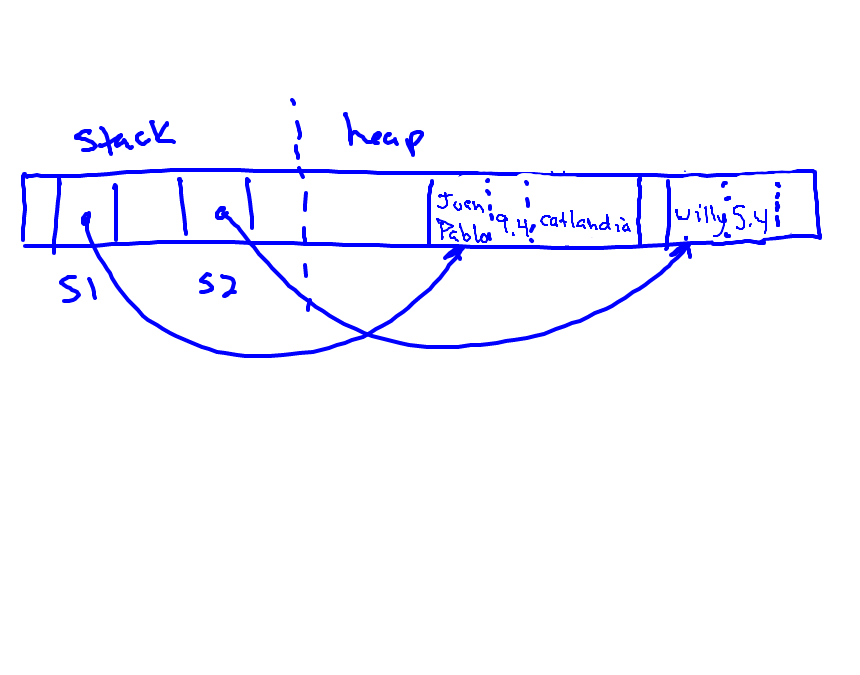 stack heap
Juan Pablo 9.4 catlandia willy 5.4
S1 S2